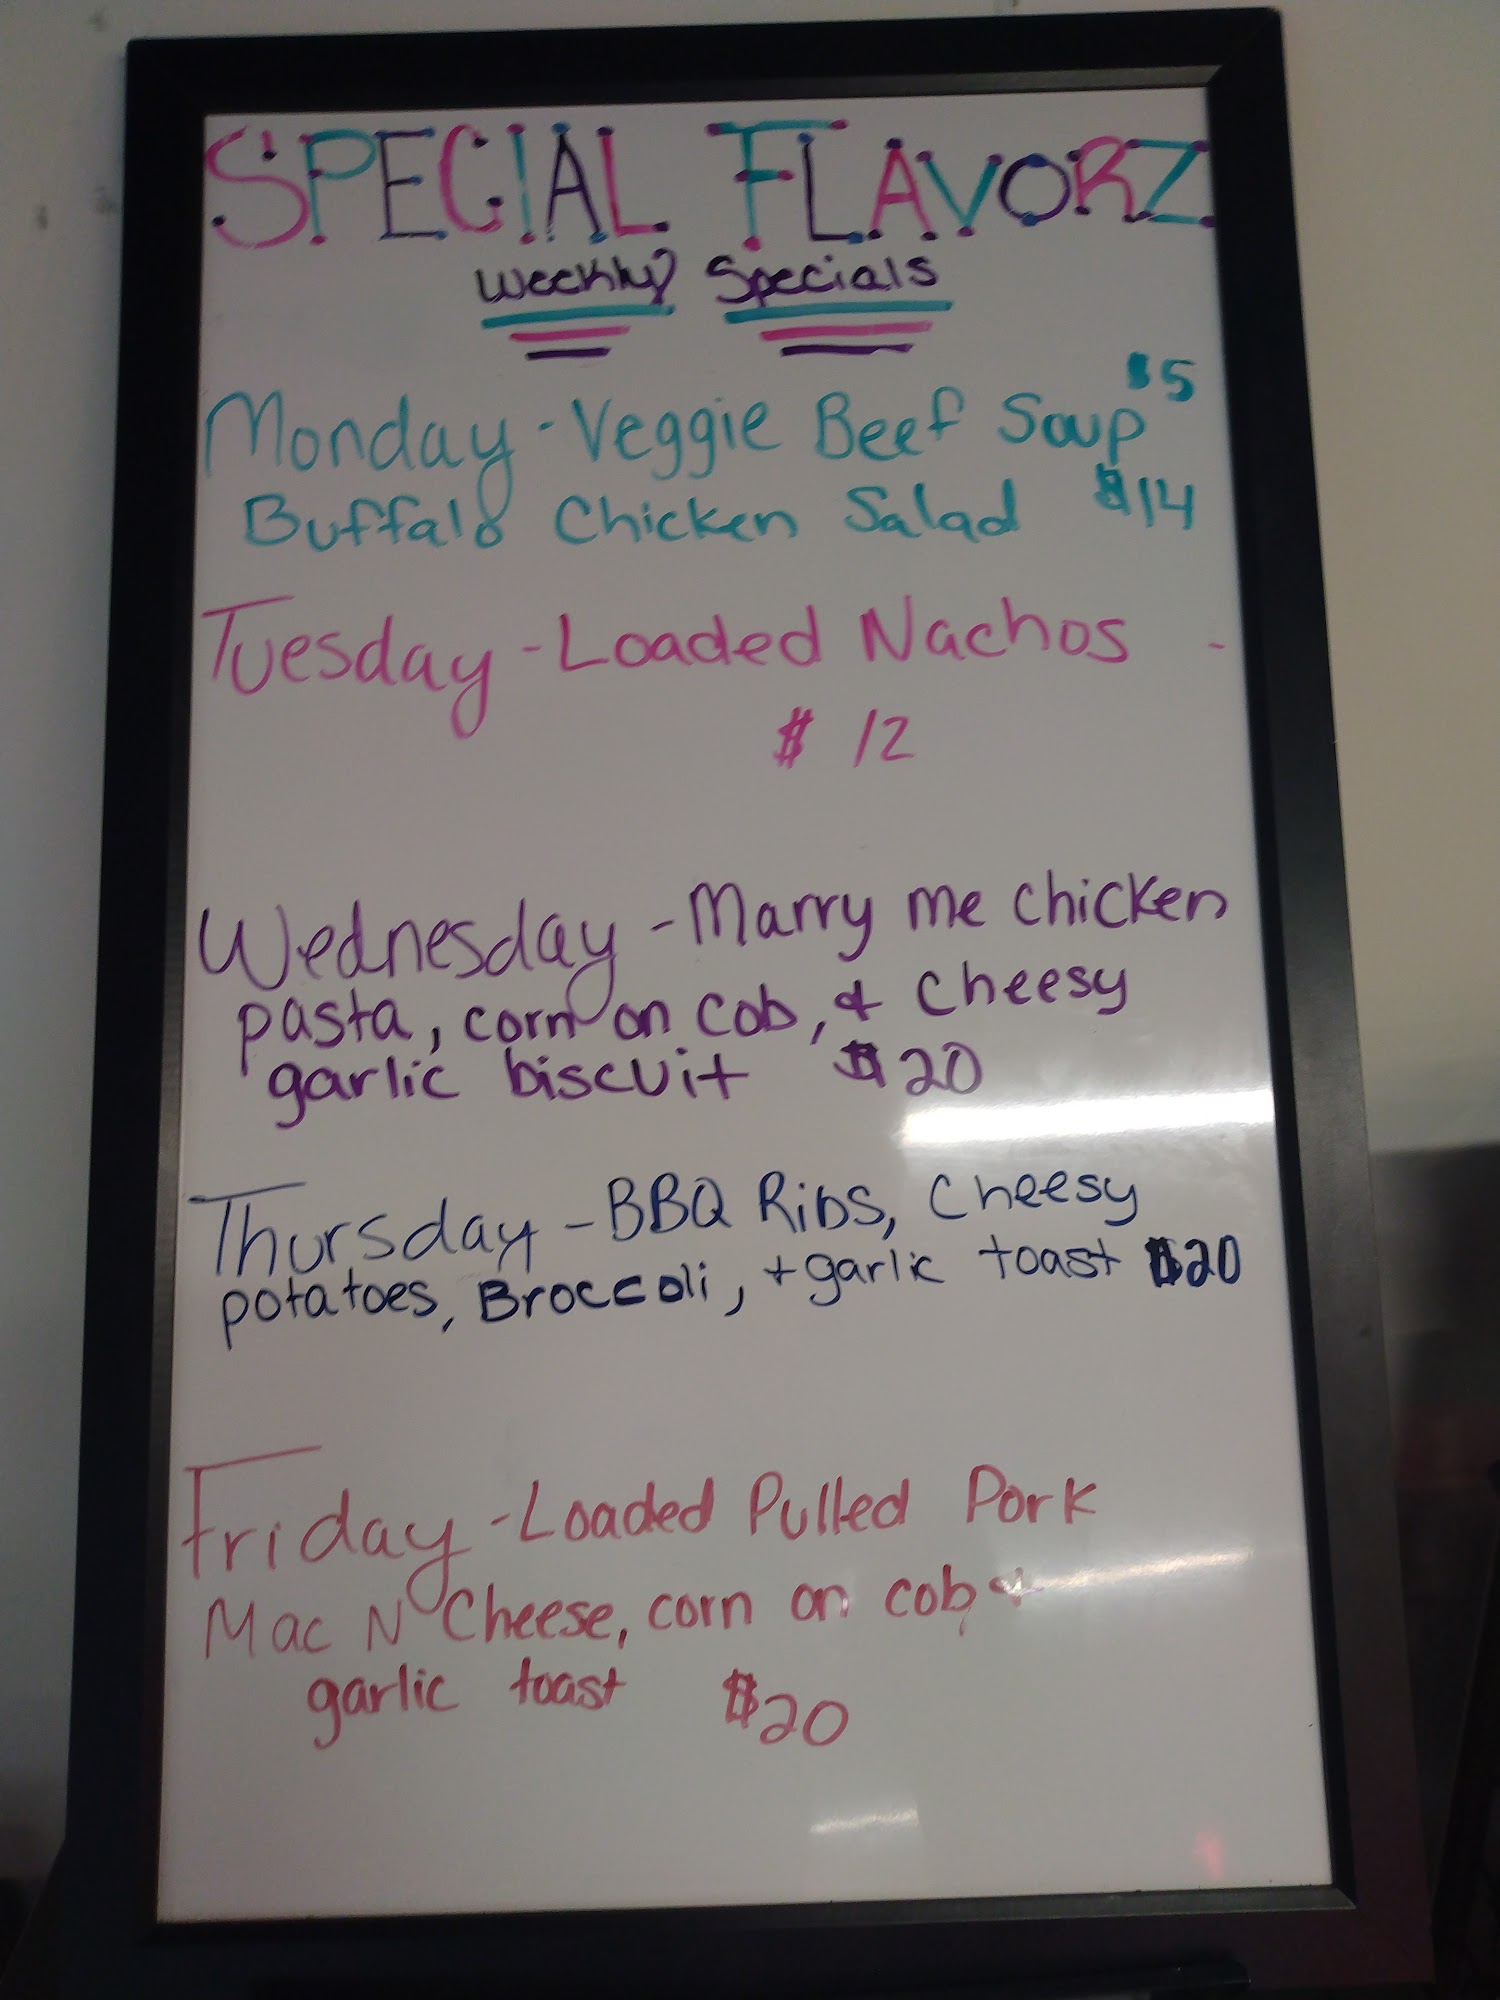 SPECIAL FLAVORZ
Weekly Specials
Monday - Veggie Beef Soup $5
Buffalo Chicken Salad $14
Tuesday - Loaded Nachos -
$ 12
Wednesday - Marry me chicken
pasta, corn on cob, & cheesy
garlic biscuit $20
Thursday - BBQ Ribs, Cheesy
potatoes, Broccoli, + garlic toast $20
Friday - Loaded Pulled Pork
Mac N Cheese, corn on cob, &
garlic toast $20